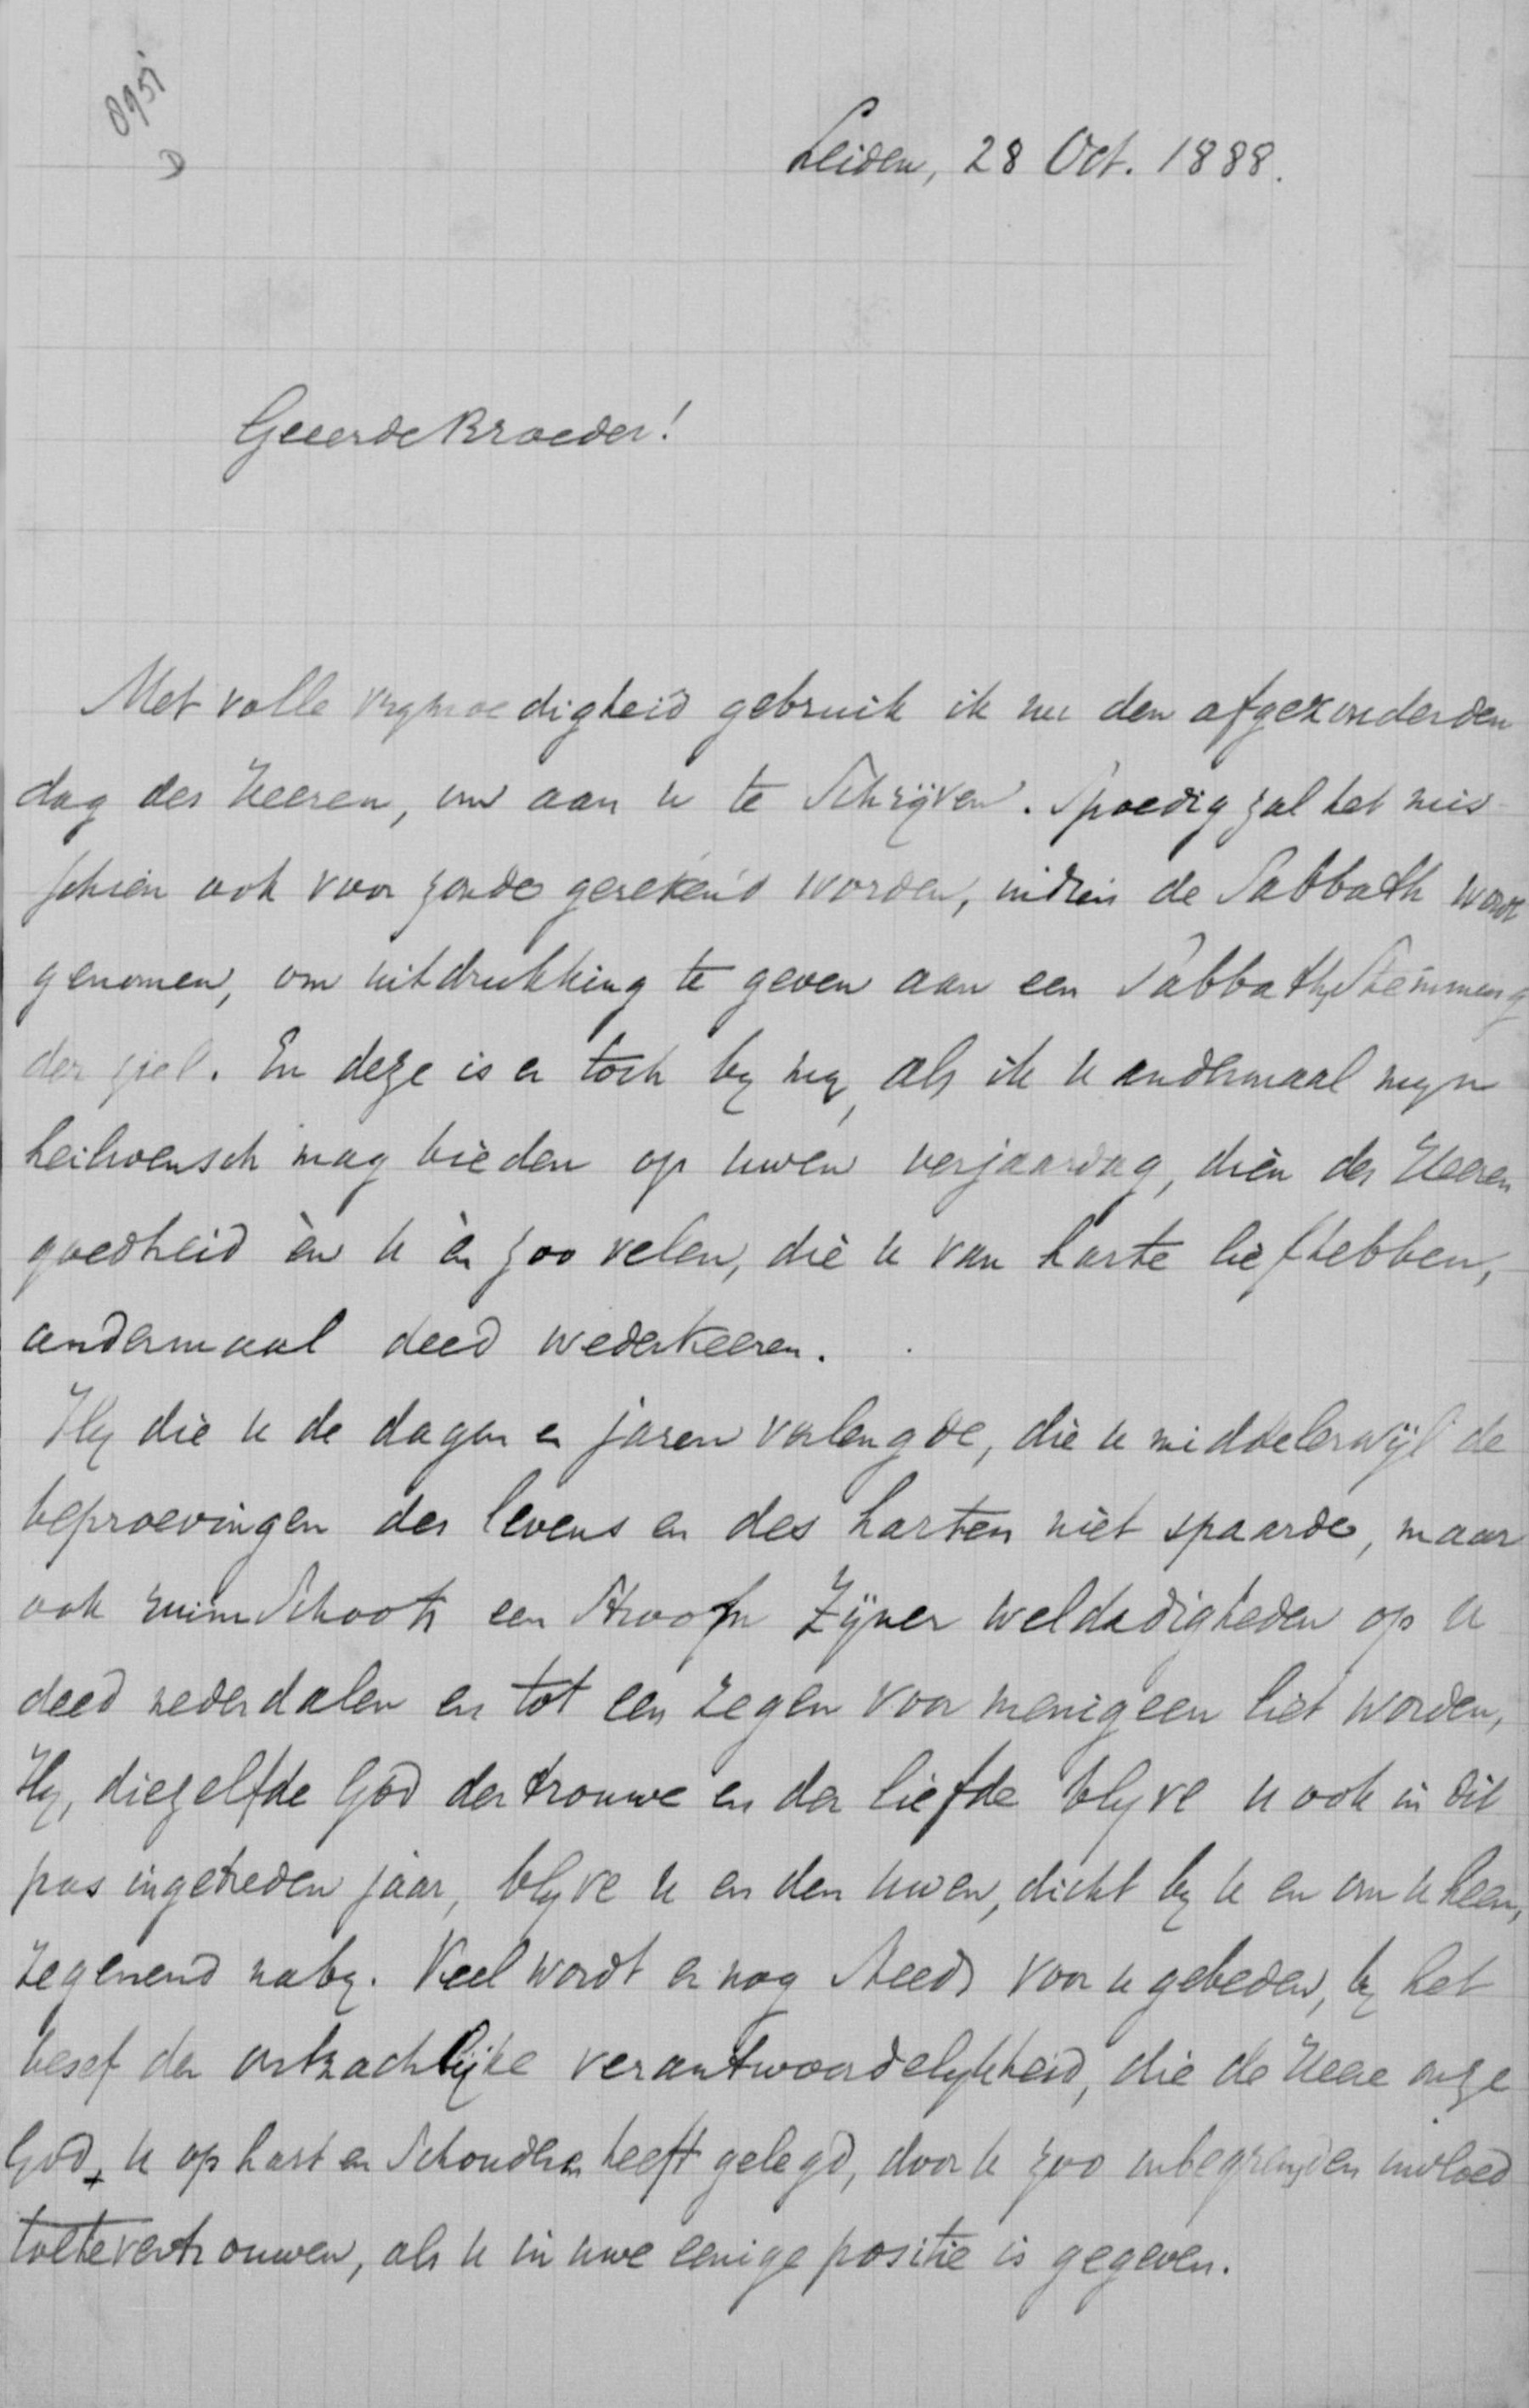 8951
D
Leiden, 28 Oct. 1888.
Geeerde Broeder!
Met volle vrymoedigheid gebruik ik nu den afgezonderden
dag des Heeren, om aan u te schrijven. Spoedig zal het mis
schien ook voor zonde gerekend worden, indien de Sabbath wordt
genomen, om uitdrukking te geven aan een Sabbathstemming
der ziel. En deze is er toch by my, als ik u andermaal myn
heilwensch mag bieden op uwen verjaardag, dien des Heeren
goedheid èn u èn zoo velen, die u van harte liefhebben,
andermaal deed wederkeeren.
Hy die u de dagen en jaren verlengde, die u middelerwijl de
beproevingen des levens en des harten niet spaarde, maar
ook ruimschoots een stroom Zijner weldadigheden op u
deed nederdalen en tot een zegen voor menigeen liet worden,
Hy, diezelfde God der trouwe en der liefde blyve u ook in dit
pas ingetreden jaar, blyve u en den uwen, dicht by u en om u heen,
zegenend naby. Veel wordt er nog steeds voor u gebeden, by het
besef der ontzachlijke verantwoordelykheid, die de Heere onze
God, u op hart en schouders heeft gelegd, door u zoo onbegrensden invloed
toe te vertrouwen, als u in uwe eenige positie is gegeven.